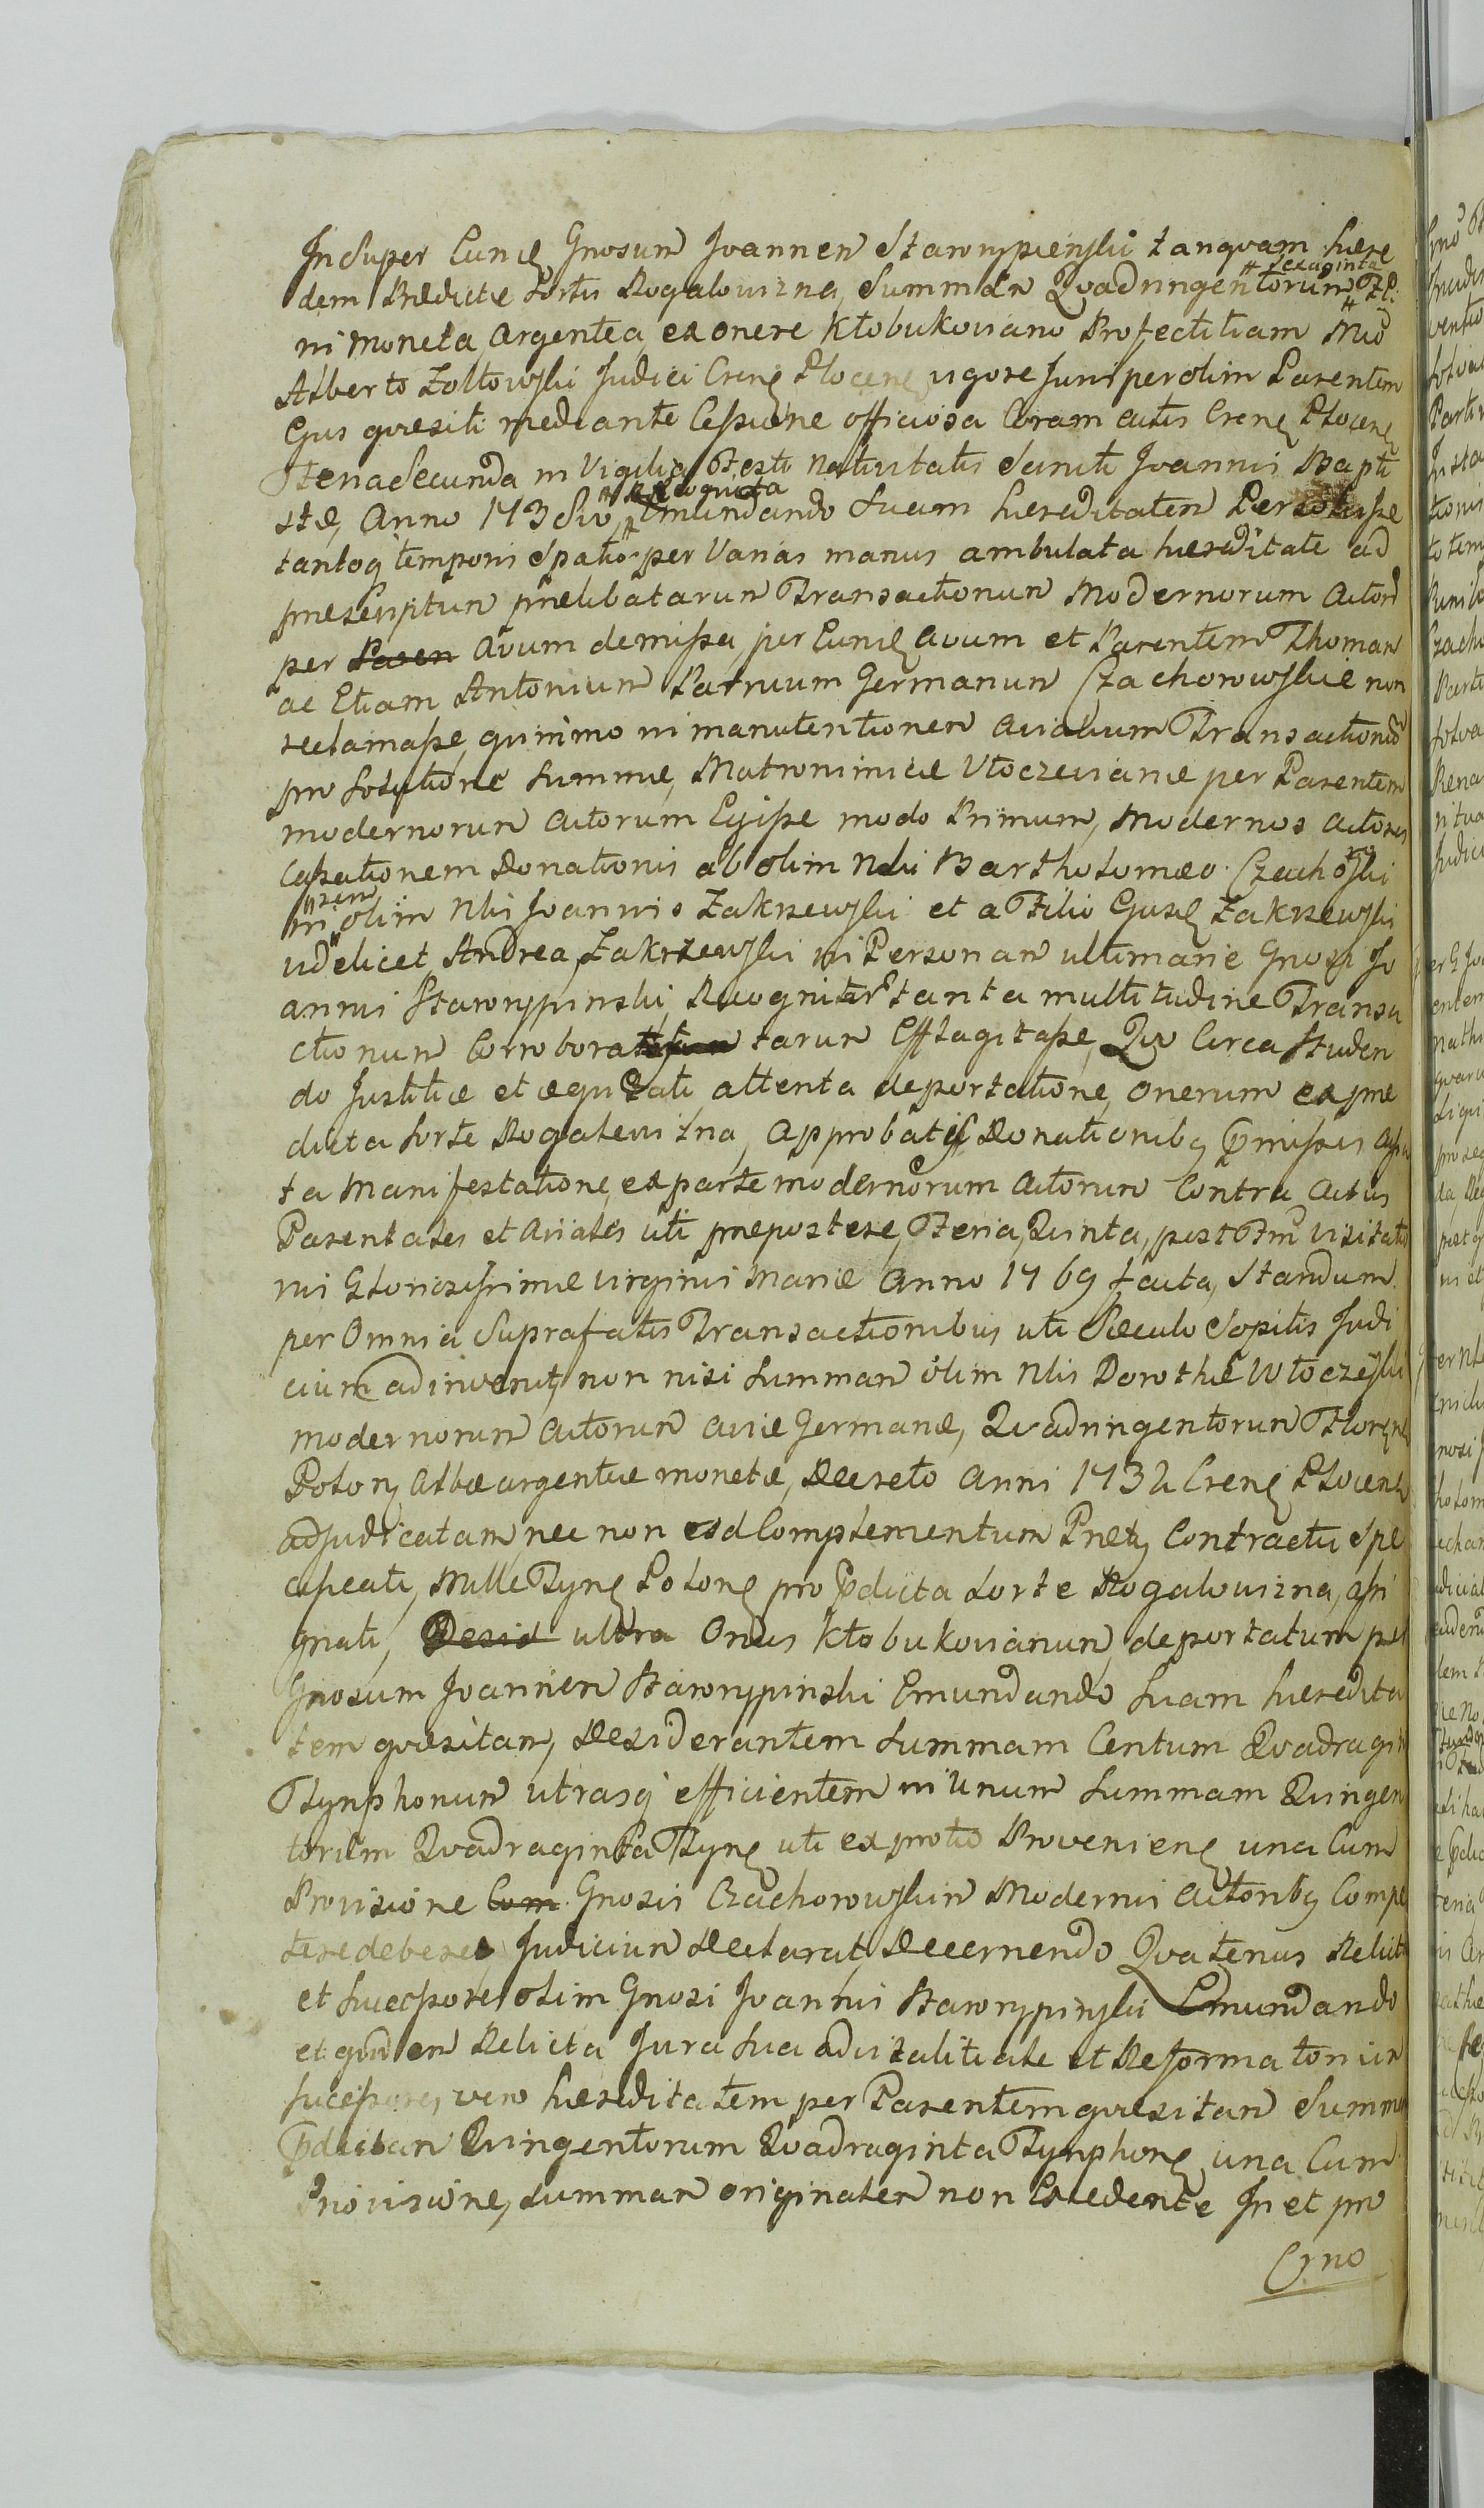 Insuper Eundē Gnosum Joannem Starorypienski tanquam hære
dem Prædictæ Sortis Rogalowizna, Summam Quadringentorum sexaginta Fl:
in moneta argentea, ex onere Kłobukoviano Profectitiam Mco
Alberto Zołtowski Judici Crensi Plocensi, vigore Juris per olim Parentem
Ejus quæsiti mediante Cessione officiosa Coram actis Crensi Plocensi
Feria Secunda in Vigilia Festi Nativitatis Sancti Joannis Bapti
stæ, Anno 173 recognita Emundando Suam hæreditatem Persolvisse
tantoq temporis Spatio per Varias manus ambulata hæreditate ad
præscriptum prælibatarum Transactionum Modernorum Actorum
per Paren Avum demissa, per Eundē Avum et Parentem Thomam
ac Etiam Antonium Patruum Germanum Czachorowskie non
reclamasse, quinimo in manutentionem avialium Transactionum
pro Solutione Summæ, Matronimicæ Włoczevianæ per Parentem
modernorum actorum Egisse modo Primum, Modernos actores
Cassationem Donationis ab olim Nbli Bartholomæo Czachowski
in rem olim Nbli Joannis Zakrzewski et a Filio Ejusdē Zakrzewski
videlicet Andrea Zakrzewski in Personam ultimarie Gnosi Jo
annis Starorypinski, Recognitar tanta multitudine Transa
ctionum Corroboratarum Efflagitasse, Quo Circa Studen
do Justitiæ et æquitati, attenta deportatione, onerum ex præ
dicta Sorte Rogalewizna, Approbatis Donationibq præmissis
ta Manifestatione, ex parte modernorum actorum Contra actus
Parentales et Aviales uti præpostere, Feria Quinta, post Ftm Visitatio
nis Gloriosissimæ Virginis Mariæ Anno 1769 facta, Standum
per Omnia Suprafatis Transactionibus uti Sæculo Sopitis Judi
cium adinvenit, non nisi Summam olim Nblis Dorotheæ Włoczeski
modernorum actorum aviæ Germanæ, Quadringentorum Floren
Polon albæ argenteæ monetæ, Decreto Anni 1732 Crensi Plocensi
adjudicatam, nec non ad Complementum Pretii Contractu Spe
cificati, Mille Tynf Polon pro Prædicta Sorte Rogalowizna, assi
gnati, Desid ultra Onus Kłobukovianum, deportatum per
Gnosum Joannem Starorypinski Emundando Suam hæredita
tem quæsitam, Desiderantem Summam Centum Quadragin
Tynphonum utrasq efficientem in Unum Summam Quingen
torum Quadraginta Tynf uti ex motio Provenien una Cum
Provisione Cum Gnosis Czachorowskim Modernis actoribq Compe
tere debere, Judicium Declarat, Decernendo Quatenus Relicta
et Successores olim Gnosi Joannis Starorypinski Emundando
et quidem Relicta Jura Sua advitalitiale et Reformatorium
Successores vero hæreditatem per Parentem quæsitam Summa
Prædictam Quingentorum Quadraginta Tynphon una Cum
Provisione, Summam originalem non Excedente In et pro
Crno